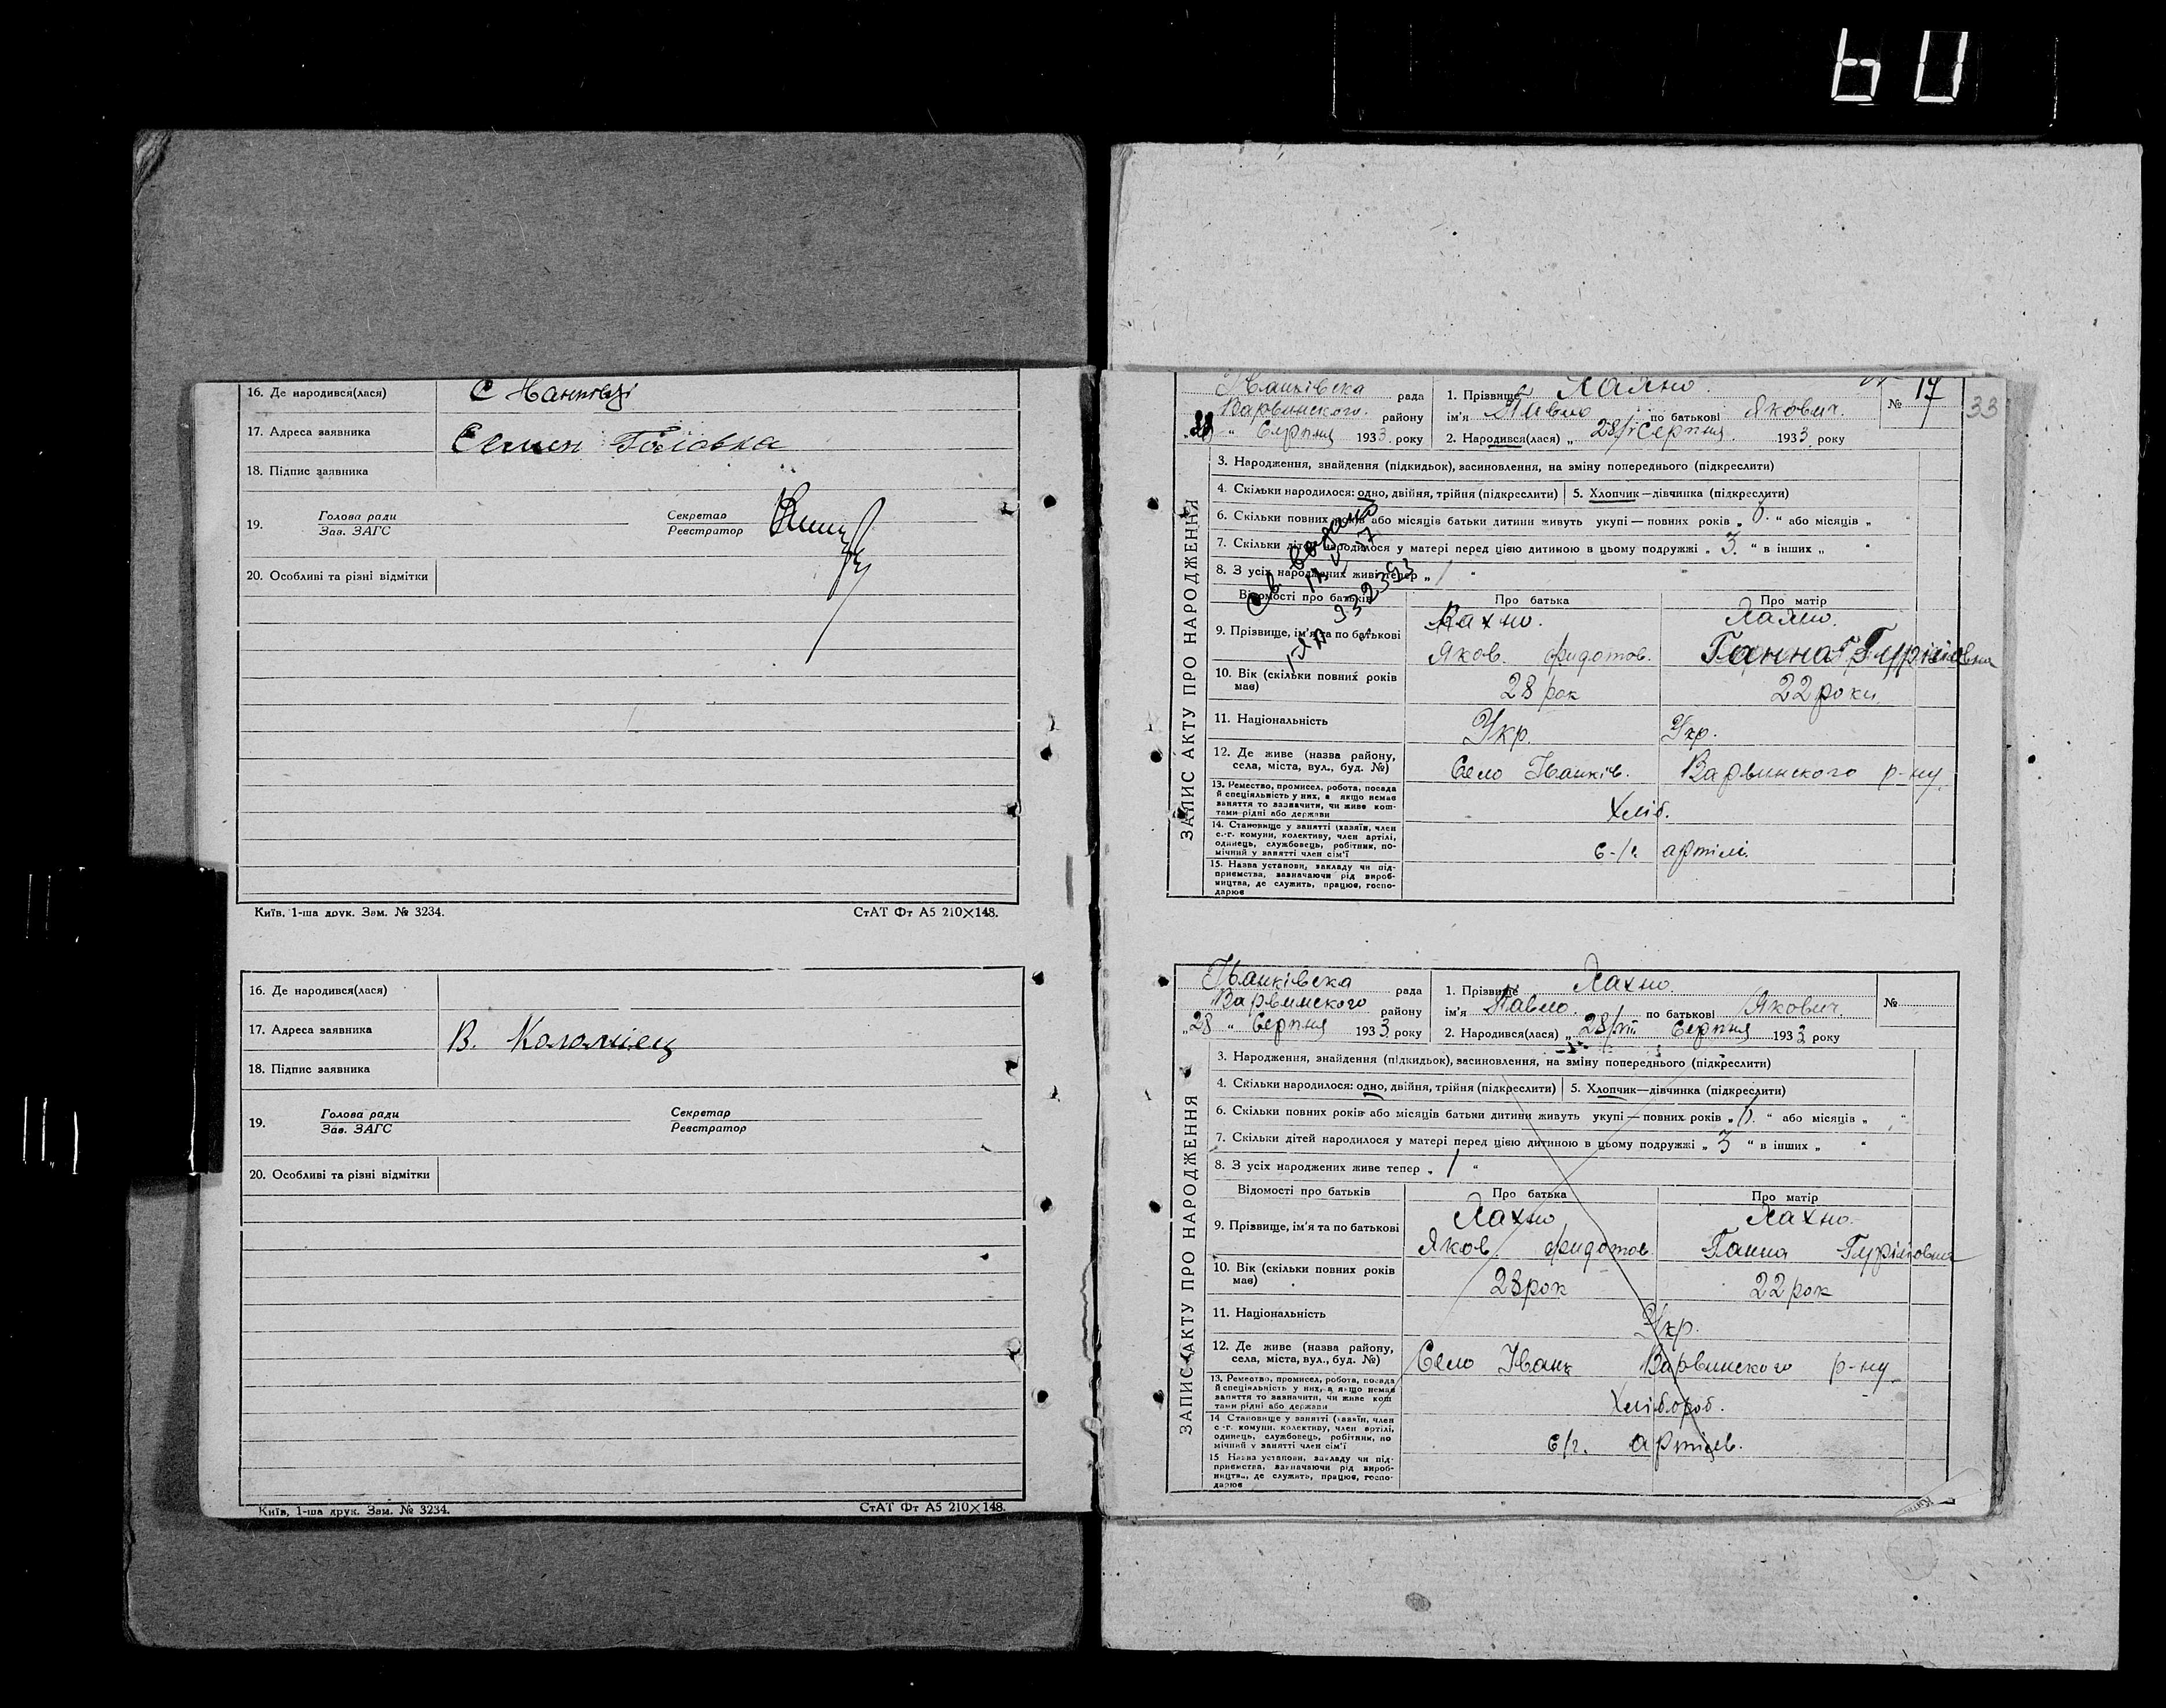 60
16. Де народився(лася)
17. Адреса заявника
Семен Головка
18. Підпис заявника
19. Голова ради
Зав. ЗАГС
Секретар
Реєстратор
20. Особливі та різні відмітки
Київ, 1-ша друк. Зам. № 3234.
СтАТ Фт А5 210×148.
16. Де народився(лася)
17. Адреса заявника
В. Коломієц
18. Підпис заявника
19. Голова ради
Зав. ЗАГС
Секретар
Реєстратор
20. Особливі та різні відмітки
Київ, 1-ша друк. Зам. № 3234.
СтАТ Фт А5 210×148.
Іванківска рада
Варвинского району
28 " Серпня 1933 року
1. Прізвище Лахно.
ім'я Павло по батькові Якович.
2. Народився(лася) „ 28/ Серпня 1933 року
№ 17
33
ЗАПИС АКТУ ПРО НАРОДЖЕННЯ
3. Народження, знайдення (підкидьок), засиновлення, на зміну попереднього (підкреслити)
4. Скільки народилося: одно, двійня, трійня (підкреслити) 5. Хлопчик—дівчинка (підкреслити)
6. Скільки повних років або місяців батьки дитини живуть укупі — повних років „ " або місяців „ "
7. Скільки дітей народилося у матері перед цією дитиною в цьому подружжі „ 3. " в інших „ "
8. З усіх народжених живе тепер „ 1 "
Відомості про батьків
Про батька
Про матір
9. Прізвище, ім'я та по батькові
Лахно.
Яков. Фидотов.
Лахно.
Ганна Гурі
10. Вік (скільки повних років має)
28 рок
22 роки.
11. Національність
Укр.
Укр.
12. Де живе (назва району, села, міста, вул., буд. №)
Село Іванків. Варвинского р-ну.
13. Ремество, промисел, робота, посада
й спеціяльність у них, а якщо немає
заняття то зазначити, чи живе кош-
тами рідні або держави
Хліб.
14. Становище у занятті (хазяїн, член
с.-г. комуни, колективу, член артілі,
одинець, службовець, робітник, по-
мічний у занятті член сім'ї
с-/г. артілі.
15. Назва установи, закладу чи під-
приємства, зазначаючи рід вироб-
ництва, де служить, працює, госпо-
дарює
Іванківска рада
Варвинского району
„28 " Серпня 1933 року
1. Прізвище Лахно.
ім'я Павло. по батькові Якович.
2. Народився(лася) „ 28/VIII Серпня 1933 року
№
ЗАПИС АКТУ ПРО НАРОДЖЕННЯ
3. Народження, знайдення (підкидьок), засиновлення, на зміну попереднього (підкреслити)
4. Скільки народилося: одно, двійня, трійня (підкреслити) 5. Хлопчик—дівчинка (підкреслити)
6. Скільки повних років або місяців батьки дитини живуть укупі — повних років „ " або місяців „ "
7. Скільки дітей народилося у матері перед цією дитиною в цьому подружжі „ 3 " в інших „ "
8. З усіх народжених живе тепер „ 1 "
Відомості про батьків
Про батька
Про матір
9. Прізвище, ім'я та по батькові
Лахно
Яков Фидотов
Лахно.
Ганна
10. Вік (скільки повних років має)
28 рок
22 рок
11. Національність
Укр.
12. Де живе (назва району, села, міста, вул., буд. №)
Село Іванк Варвинского р-ну.
13. Ремество, промисел, робота, посада
й спеціяльність у них, а якщо немає
заняття то зазначити, чи живе кош
тами рідні або держави
Хлібороб.
14 Становище у занятті (хазяїн, член
с.-г. комуни, колективу, член артілі,
одинець, службовець, робітник, по
мічний у занятті член сім'ї
с/г. артілів.
15 Назва установи, закладу чи під-
приємства, зазначаючи рід вироб-
ництва, де служить, працює, госпо-
дарює